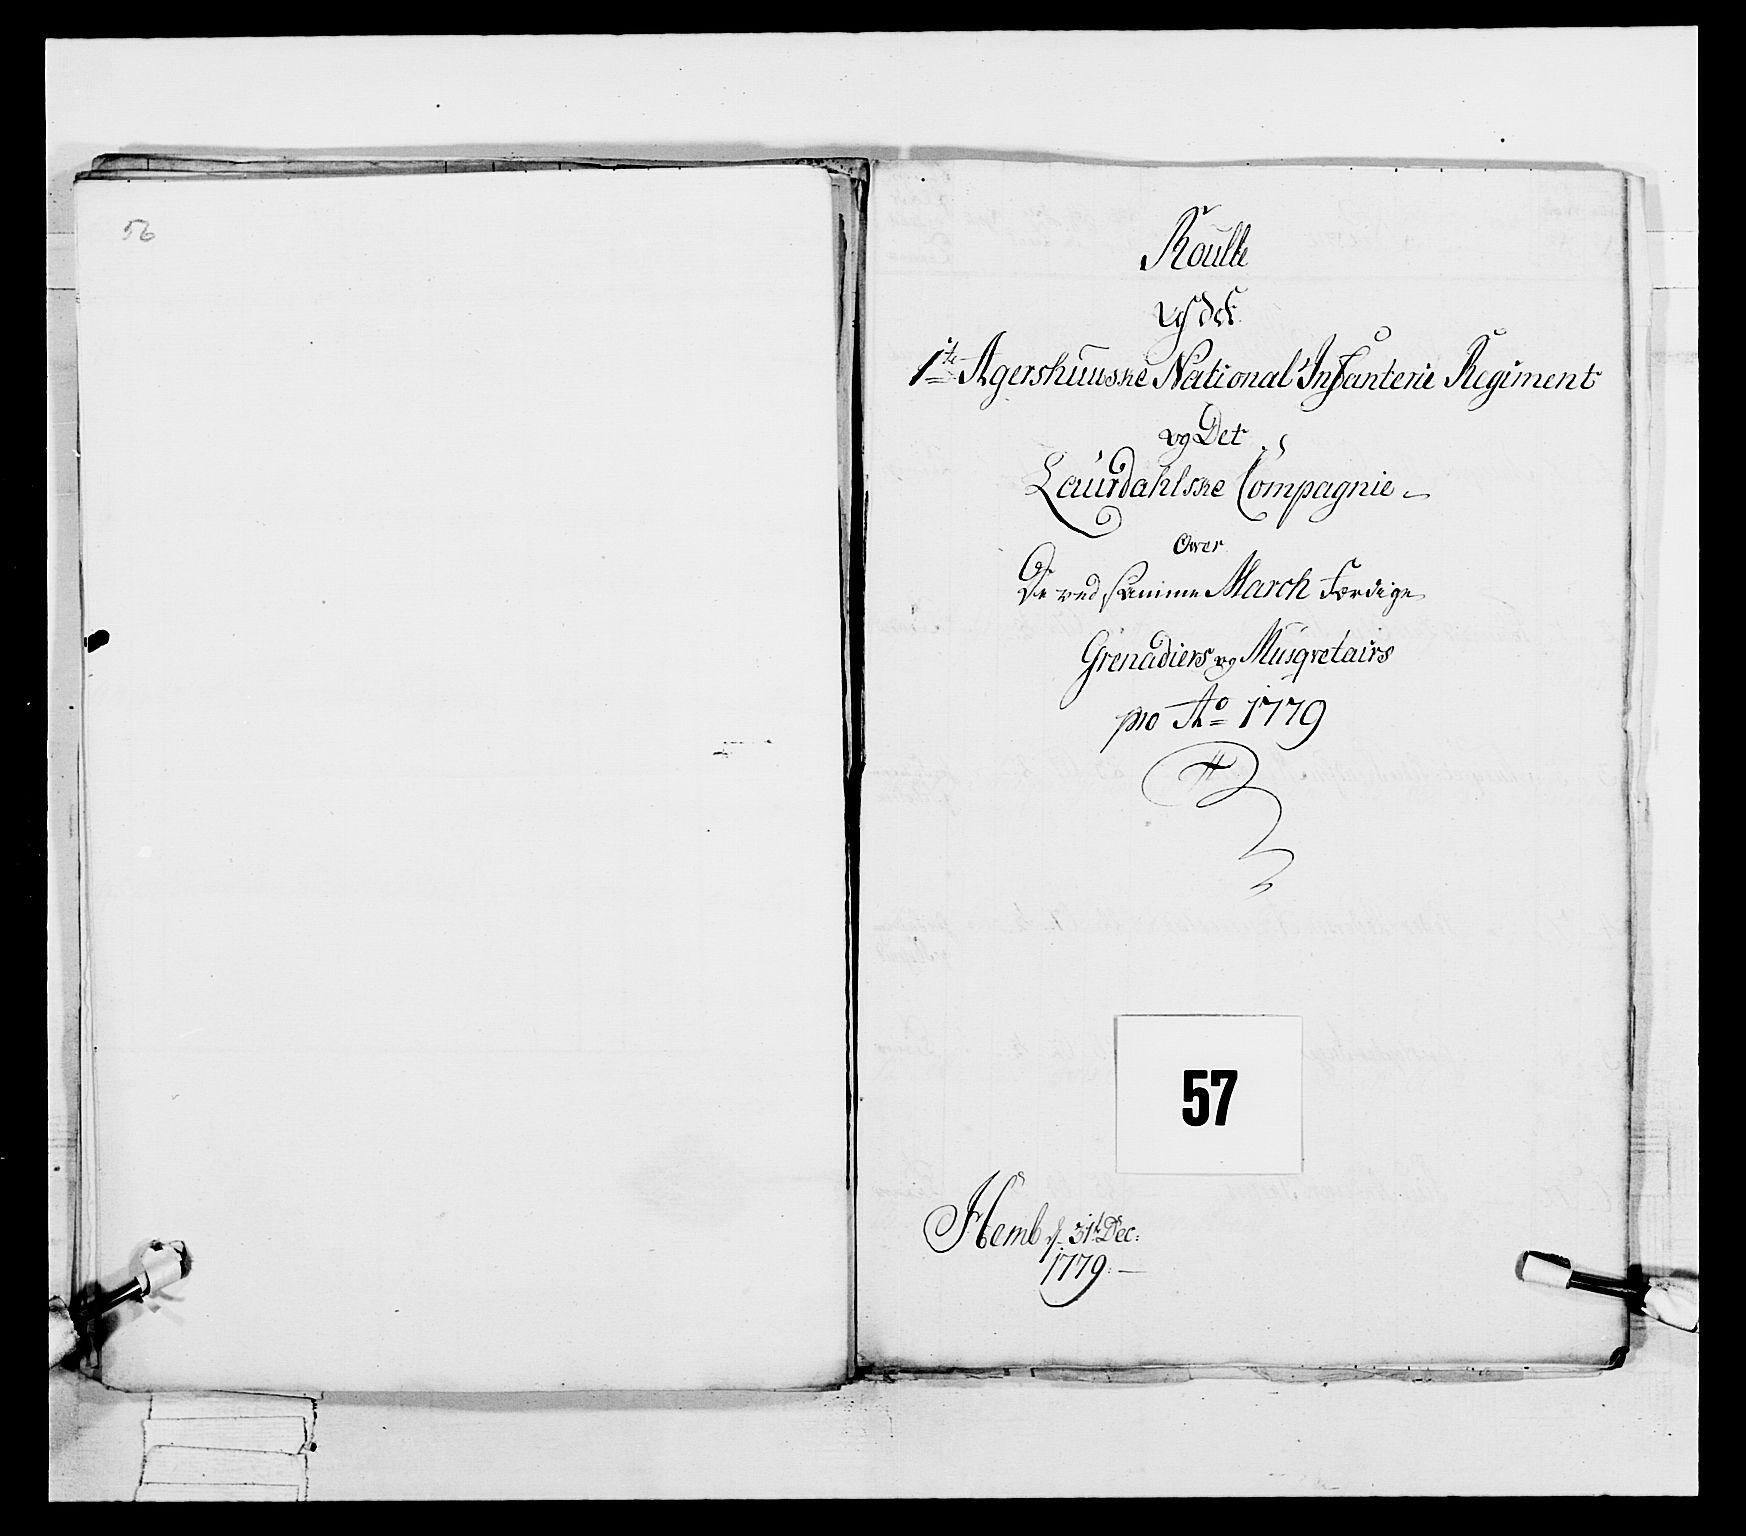 56
Roulle
Af det
1ste Agershuuske National Infanterie Regiment
og Det
Laurdahlske Compagnie
Over
De ved samme March Færdige
Grenadiers og Musqvetairs
pro Ao 1779
57
Hemb d. 31te Dec:
1779.